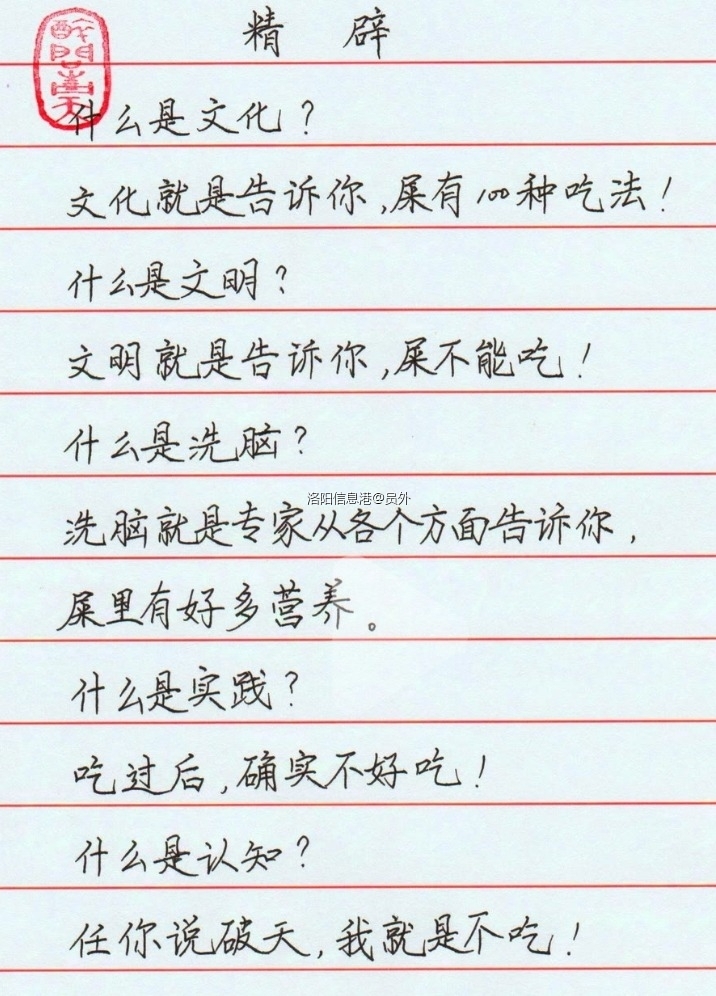 精 辟
什么是文化？
文化就是告诉你,屎有100种吃法！
什么是文明？
文明就是告诉你,屎不能吃！
什么是洗脑？
洛阳信息港@员外
洗脑就是专家从各个方面告诉你,
屎里有好多营养。
什么是实践？
吃过后,确实不好吃！
什么是认知？
任你说破天,我就是不吃！